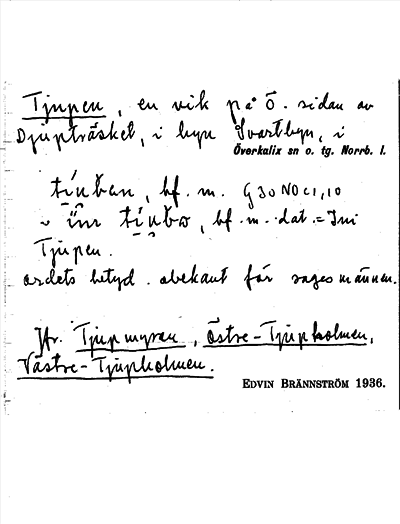 Tjupen, en vik på Ö. sidan av
Djupträsket, i byn Svartbyn, i
Överkalix sn o. tg. Norrb. l.
tíuban, bf. m. G 30 NO c 1, 10
i ı̈nı tíubω, bf. m. dat. = Ini
Tjupen.
ordets betyd. obekant för sagesmännen.
Jfr. Tjupmyran, Östre-Tjupholmen,
Västre-Tjupholmen.
EDVIN BRÄNNSTRÖM 1936.